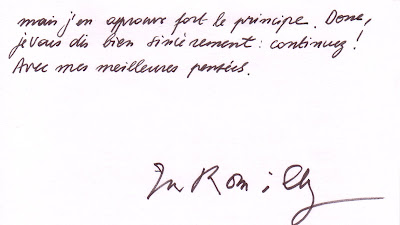 mais j'en approuve fort le principe. Donc,
je vous dis bien sincèrement : continuez !
Avec mes meilleures pensées.
J de Romilly